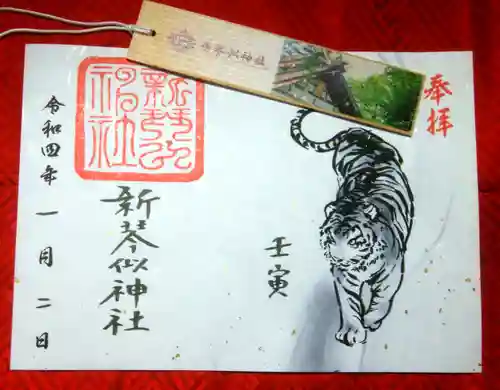 奉拝
壬寅
新琴似神社
新琴似神社
令和四年一月二日
新琴似神社